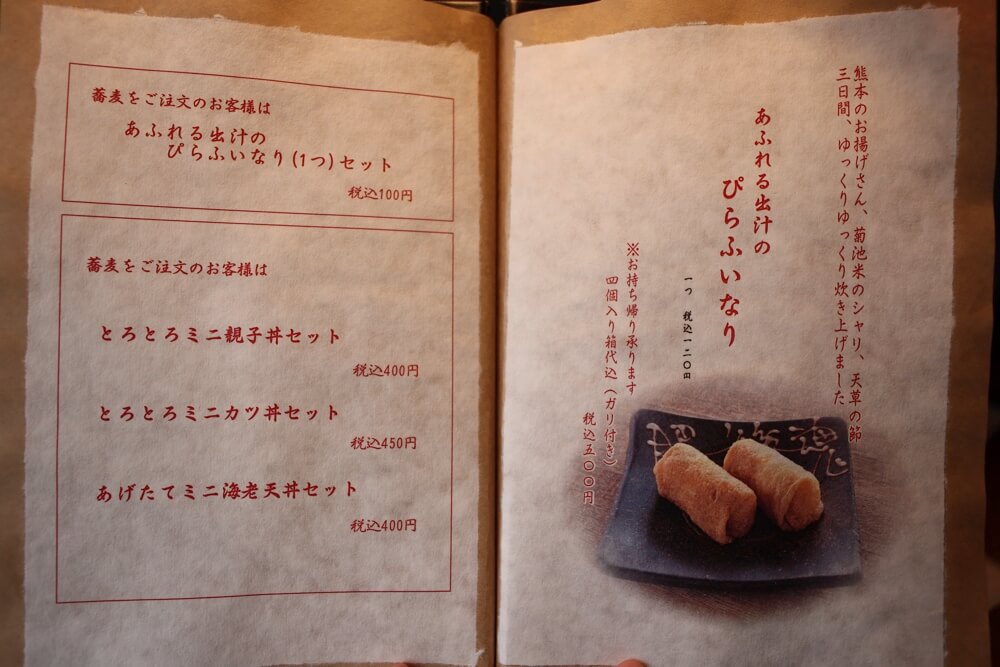 蕎麦をご注文のお客様は
あふれる出汁の
ぴらふいなり(1つ)セット
税込100円
蕎麦をご注文のお客様は
とろとろミニ親子丼セット
税込400円
とろとろミニカツ丼セット
税込450円
あげたてミニ海老天丼セット
税込400円
熊本のお揚げさん、菊池米のシャリ、天草の節
三日間、ゆっくりゆっくり炊き上げました
あふれる出汁の
ぴらふいなり
一つ 税込一二〇円
※お持ち帰り承ります
四個入り箱代込(ガリ付き)
税込五〇〇円